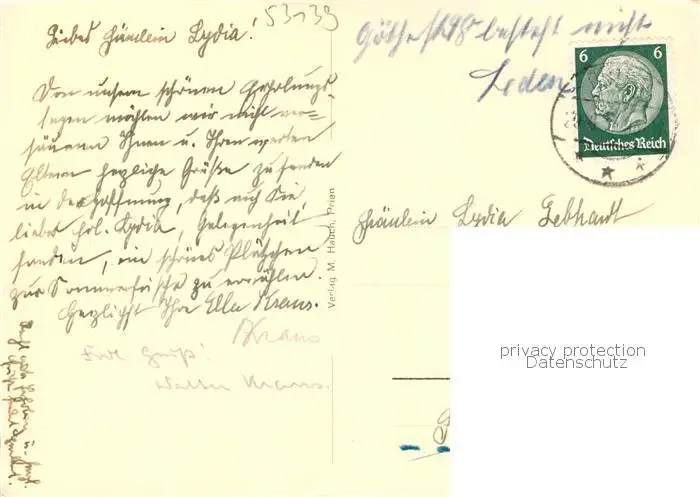 53139
Liebes Fräulein Lydia!
Von unsern schönen Erholungs-
tagen möchten wir nicht ver-
säumen Ihnen u. Ihren werten
Eltern herzliche Grüße zu senden
in der Hoffnung, daß auch Sie,
liebes Frl. Lydia, Gelegenheit
fanden, ein schönes Plätzchen
zur Sommerfrische zu erwählen.
Herzlichst Ihre Ella Kraus.
Kraus
Frdl. Gruß!
Walter Kraus.
Verlag M. Hauch, Prien
Göthestr 48 besteht nicht
6 6
Deutsches Reich
Fräulein Lydia Gebhardt
privacy protection
Datenschutz